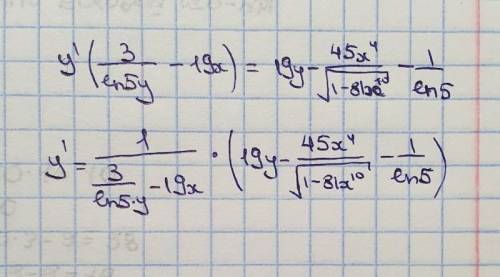 y' (3/ln5y - 19x) = 19y - 45x⁴/√(1-81x¹⁰) - 1/ln5
y' = 1/(3/(ln5·y) - 19x) · (19y - 45x⁴/√(1-81x¹⁰) - 1/ln5)